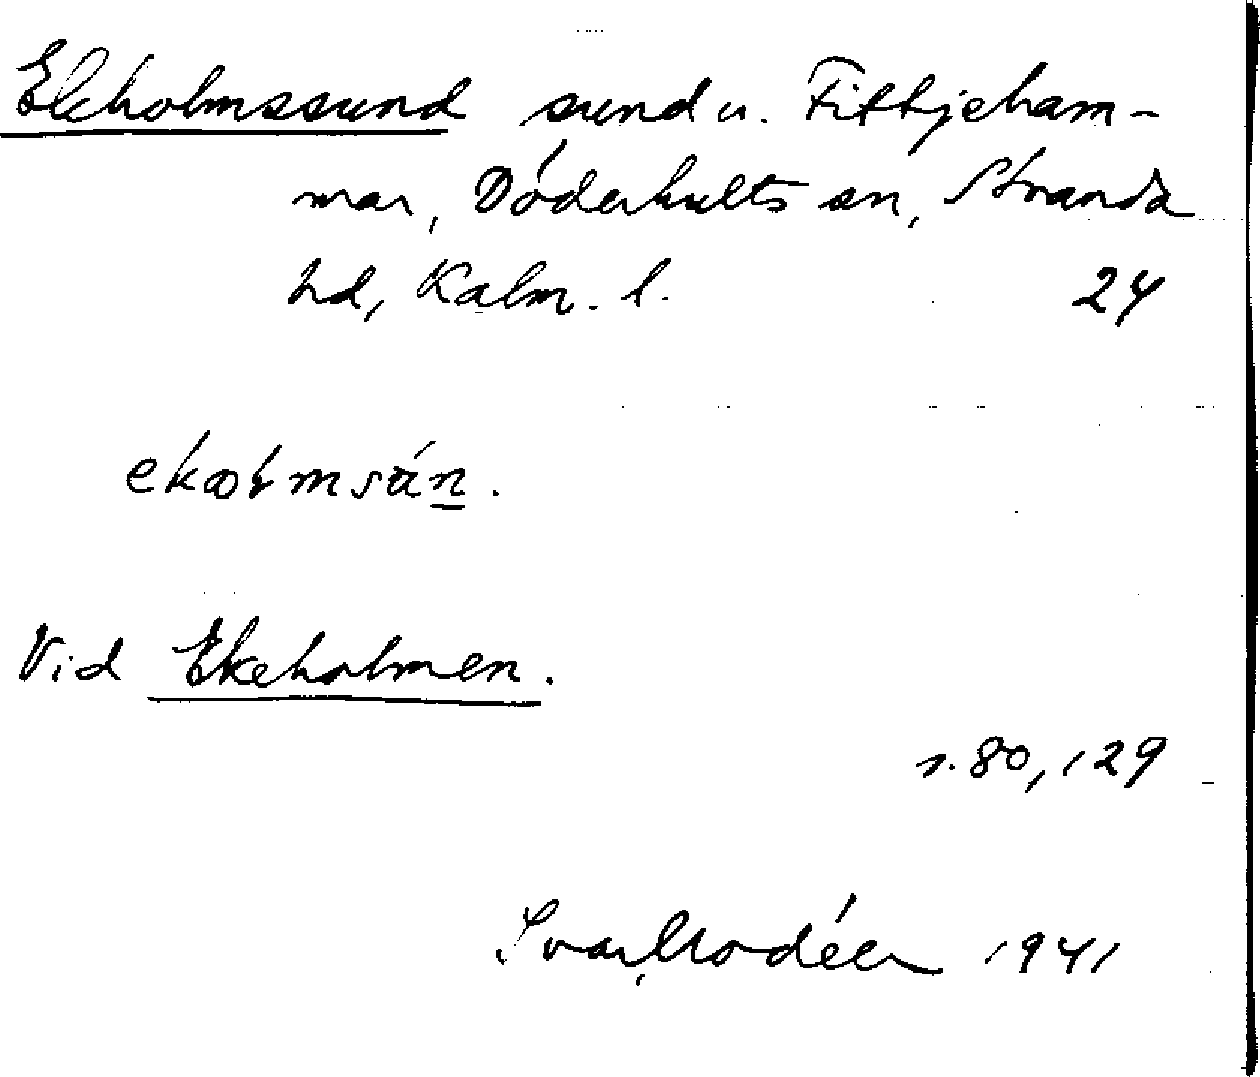 Ekholmssund sund u. Fittjeham-
mar, Döderhults sn, Stranda
hd, Kalm. l. 24
ekoɫmsún.
Vid Ekeholmen.
s. 80, 129
Ivar Modéer 1941